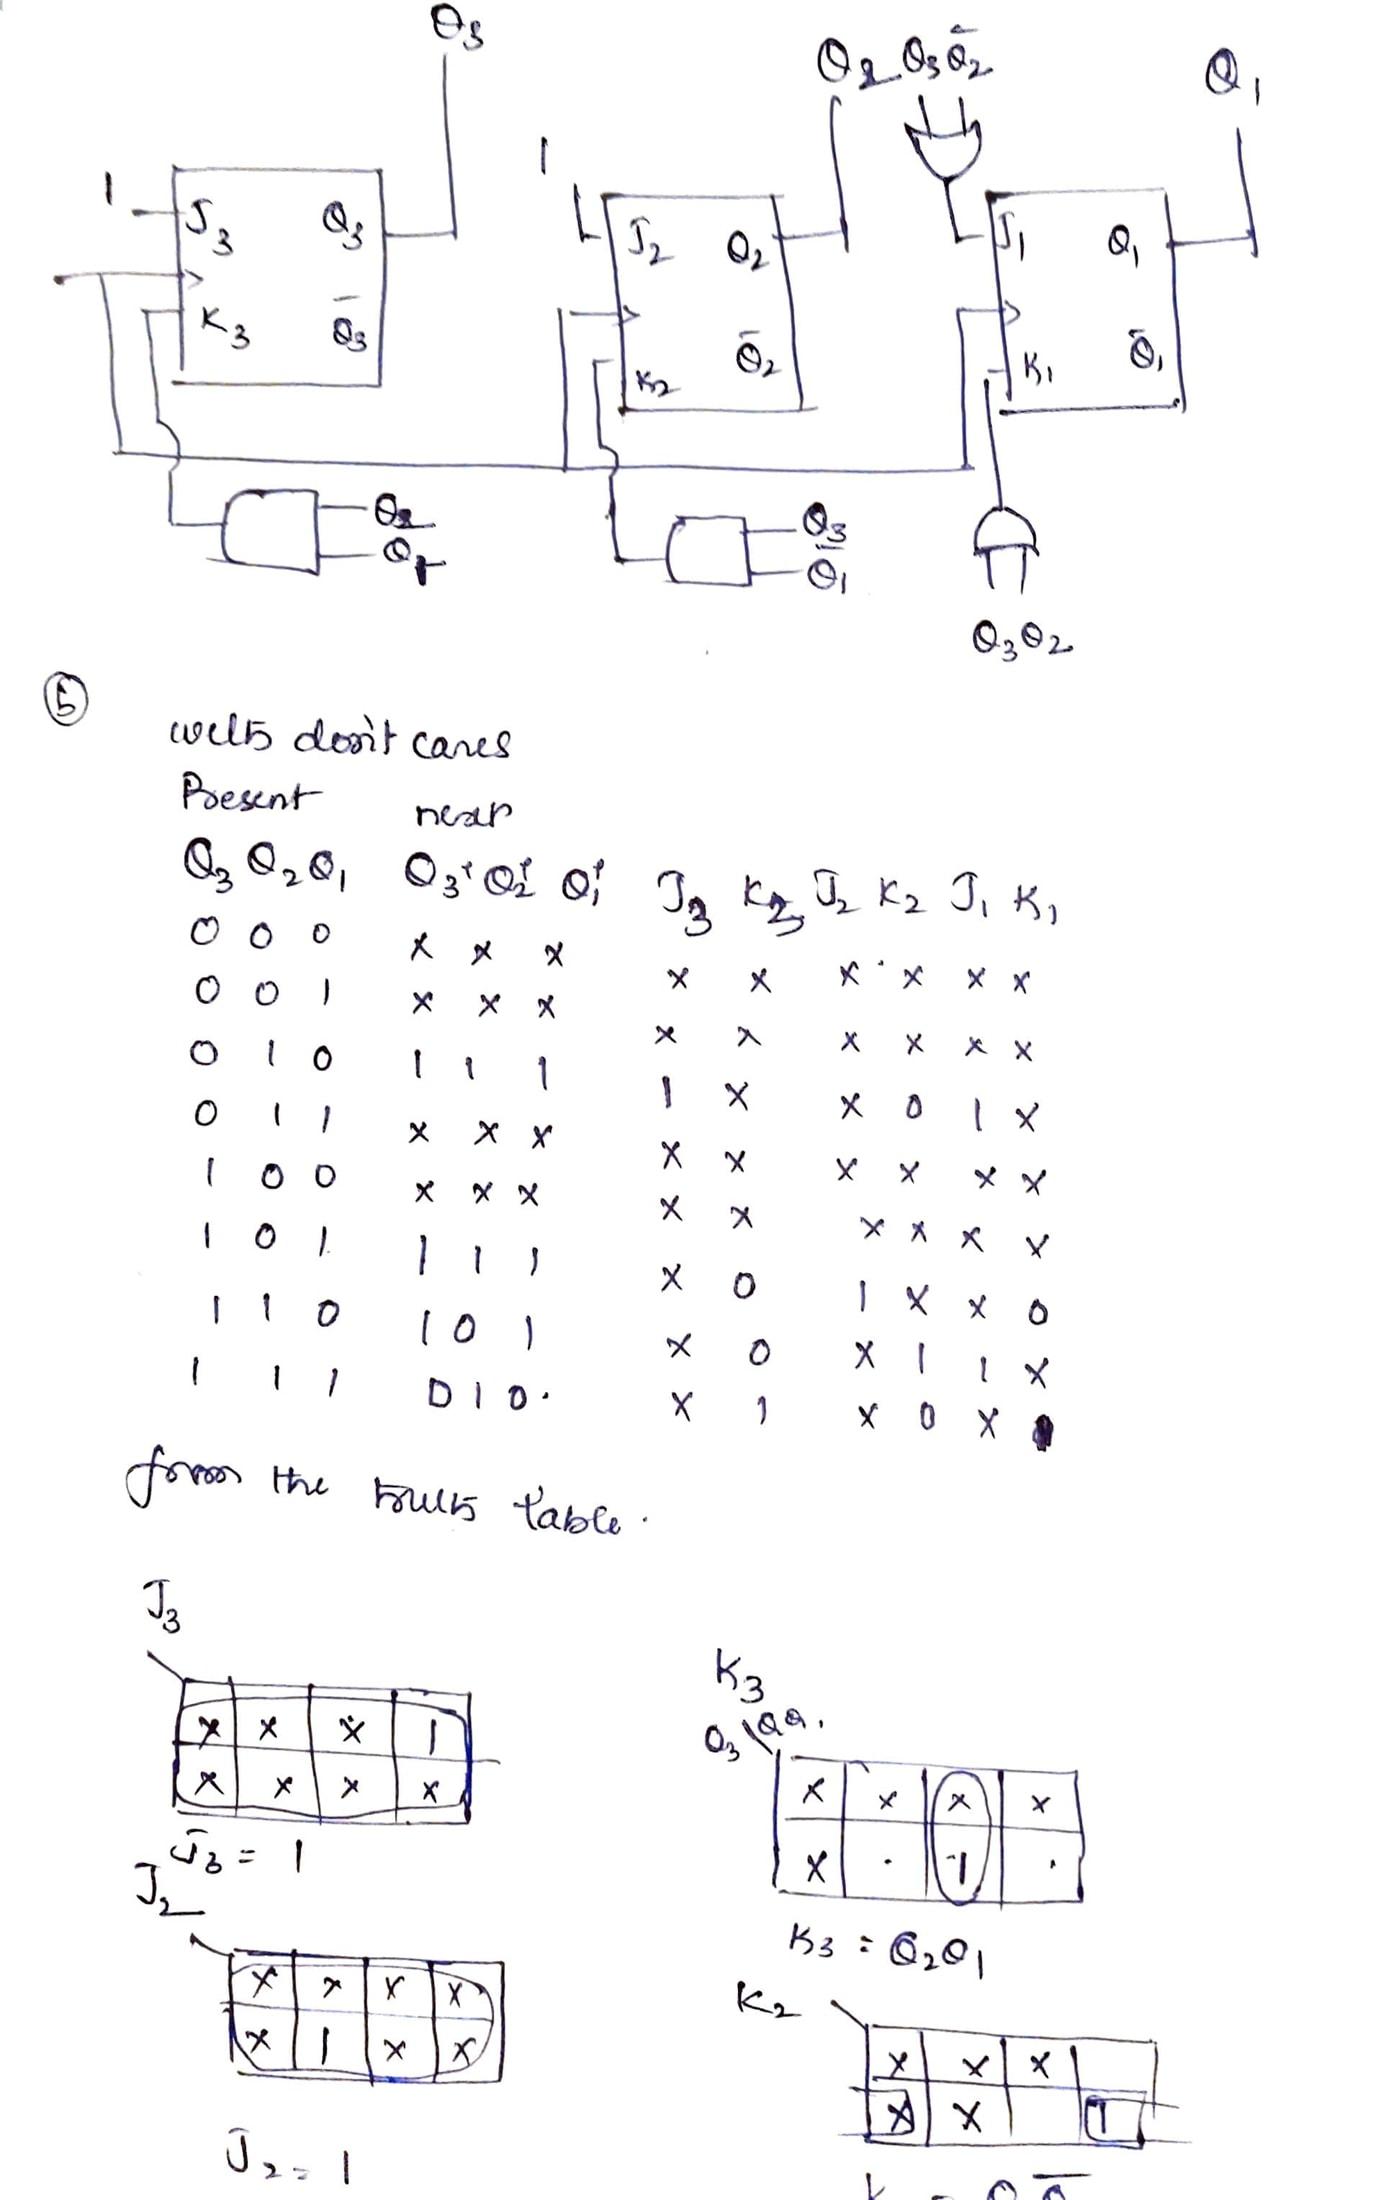 Q3
Q2 Q3 Q̄2 Q1
1 J3 Q3
K3 Q̄3
1 J2 Q2
K2 Q̄2
J1 Q1
K1 Q̄1
Q2
Q1
Q3
Q̄1
Q3 Q2
5
with don't cares
Present next
Q3 Q2 Q1 Q3+ Q2+ Q1+ J3 K3 J2 K2 J1 K1
0 0 0 x x x x x x x x x
0 0 1 x x x x x x x x x
0 1 0 1 1 1 1 x x 0 1 x
0 1 1 x x x x x x x x x
1 0 0 x x x x x x x x x
1 0 1 1 1 1 x 0 1 x x 0
1 1 0 1 0 1 x 0 x 1 1 x
1 1 1 0 1 0. x 1 x 0 x 1
from the truth table.
J3
x x x 1
x x x x
J3 = 1
K3
Q3 \ QQ1
x x x x
x . 1 .
K3 = Q2Q1
J2
x x x x
x 1 x x
J2 = 1
K2
x x x
x x 1